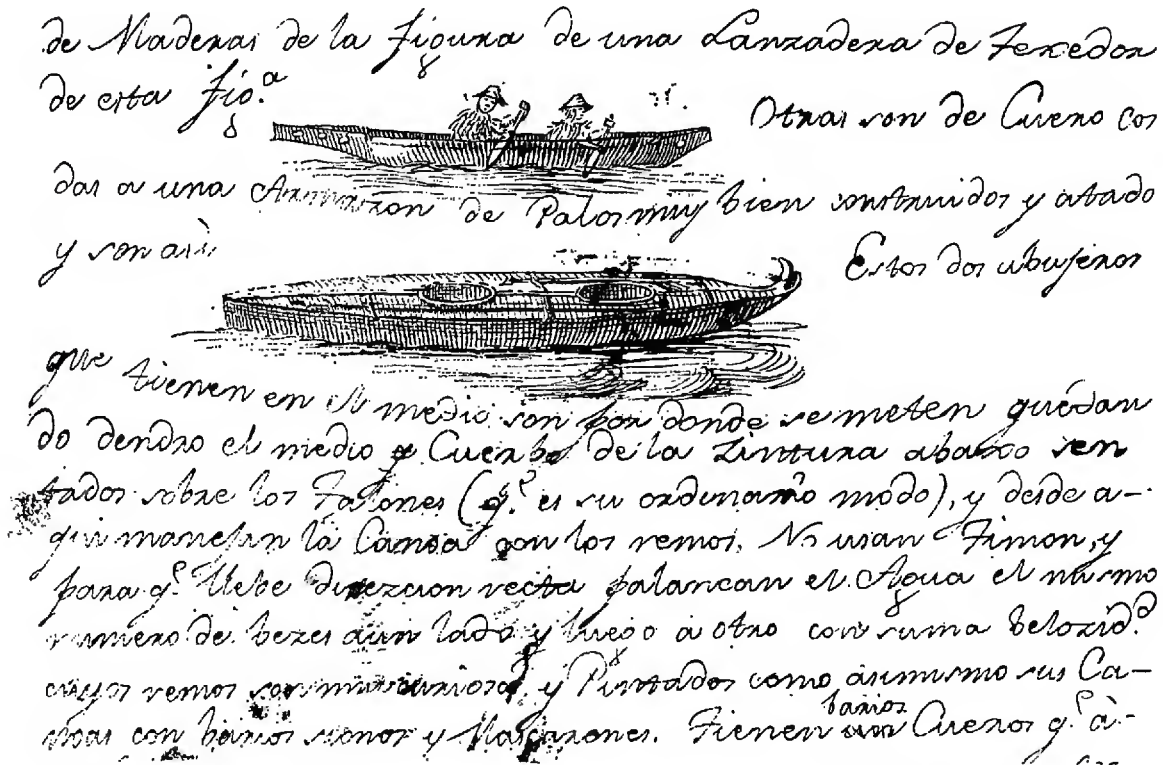 de Maderas de la figura de una Lanzadera de Texedor
de esta fig.ª Otras son de Cuero cos
das a una Armazon de Palos muy bien construidos y atado
y son asi Estos dos abujeros
que tienen en el medio son por donde se meten quedan
do dendro el medio Cuerbo de la Zinttura abaxo sen
tados sobre los Talones (q.e es su ordinario modo), y desde a-
qui manejan la Canoa con los remos. No usan Timon, y
para q.e llebe direzcion recta palancan el Agua el mismo
numero de bezes a un lado y luego a otro con suma belozid.d
cuyos remos son mui curiosos y Pintados como asimismo sus Ca-
noas con barios y Mascarones. Tienen barios Cueros q.e à-